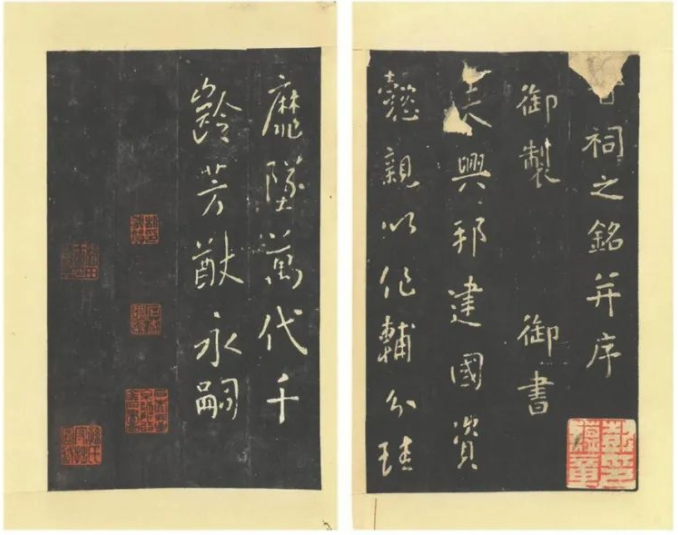 祠之銘并序
御製 御書
夫興邦建國資
懿親以作輔分珪
靡墜萬代千
齡芳猷永嗣